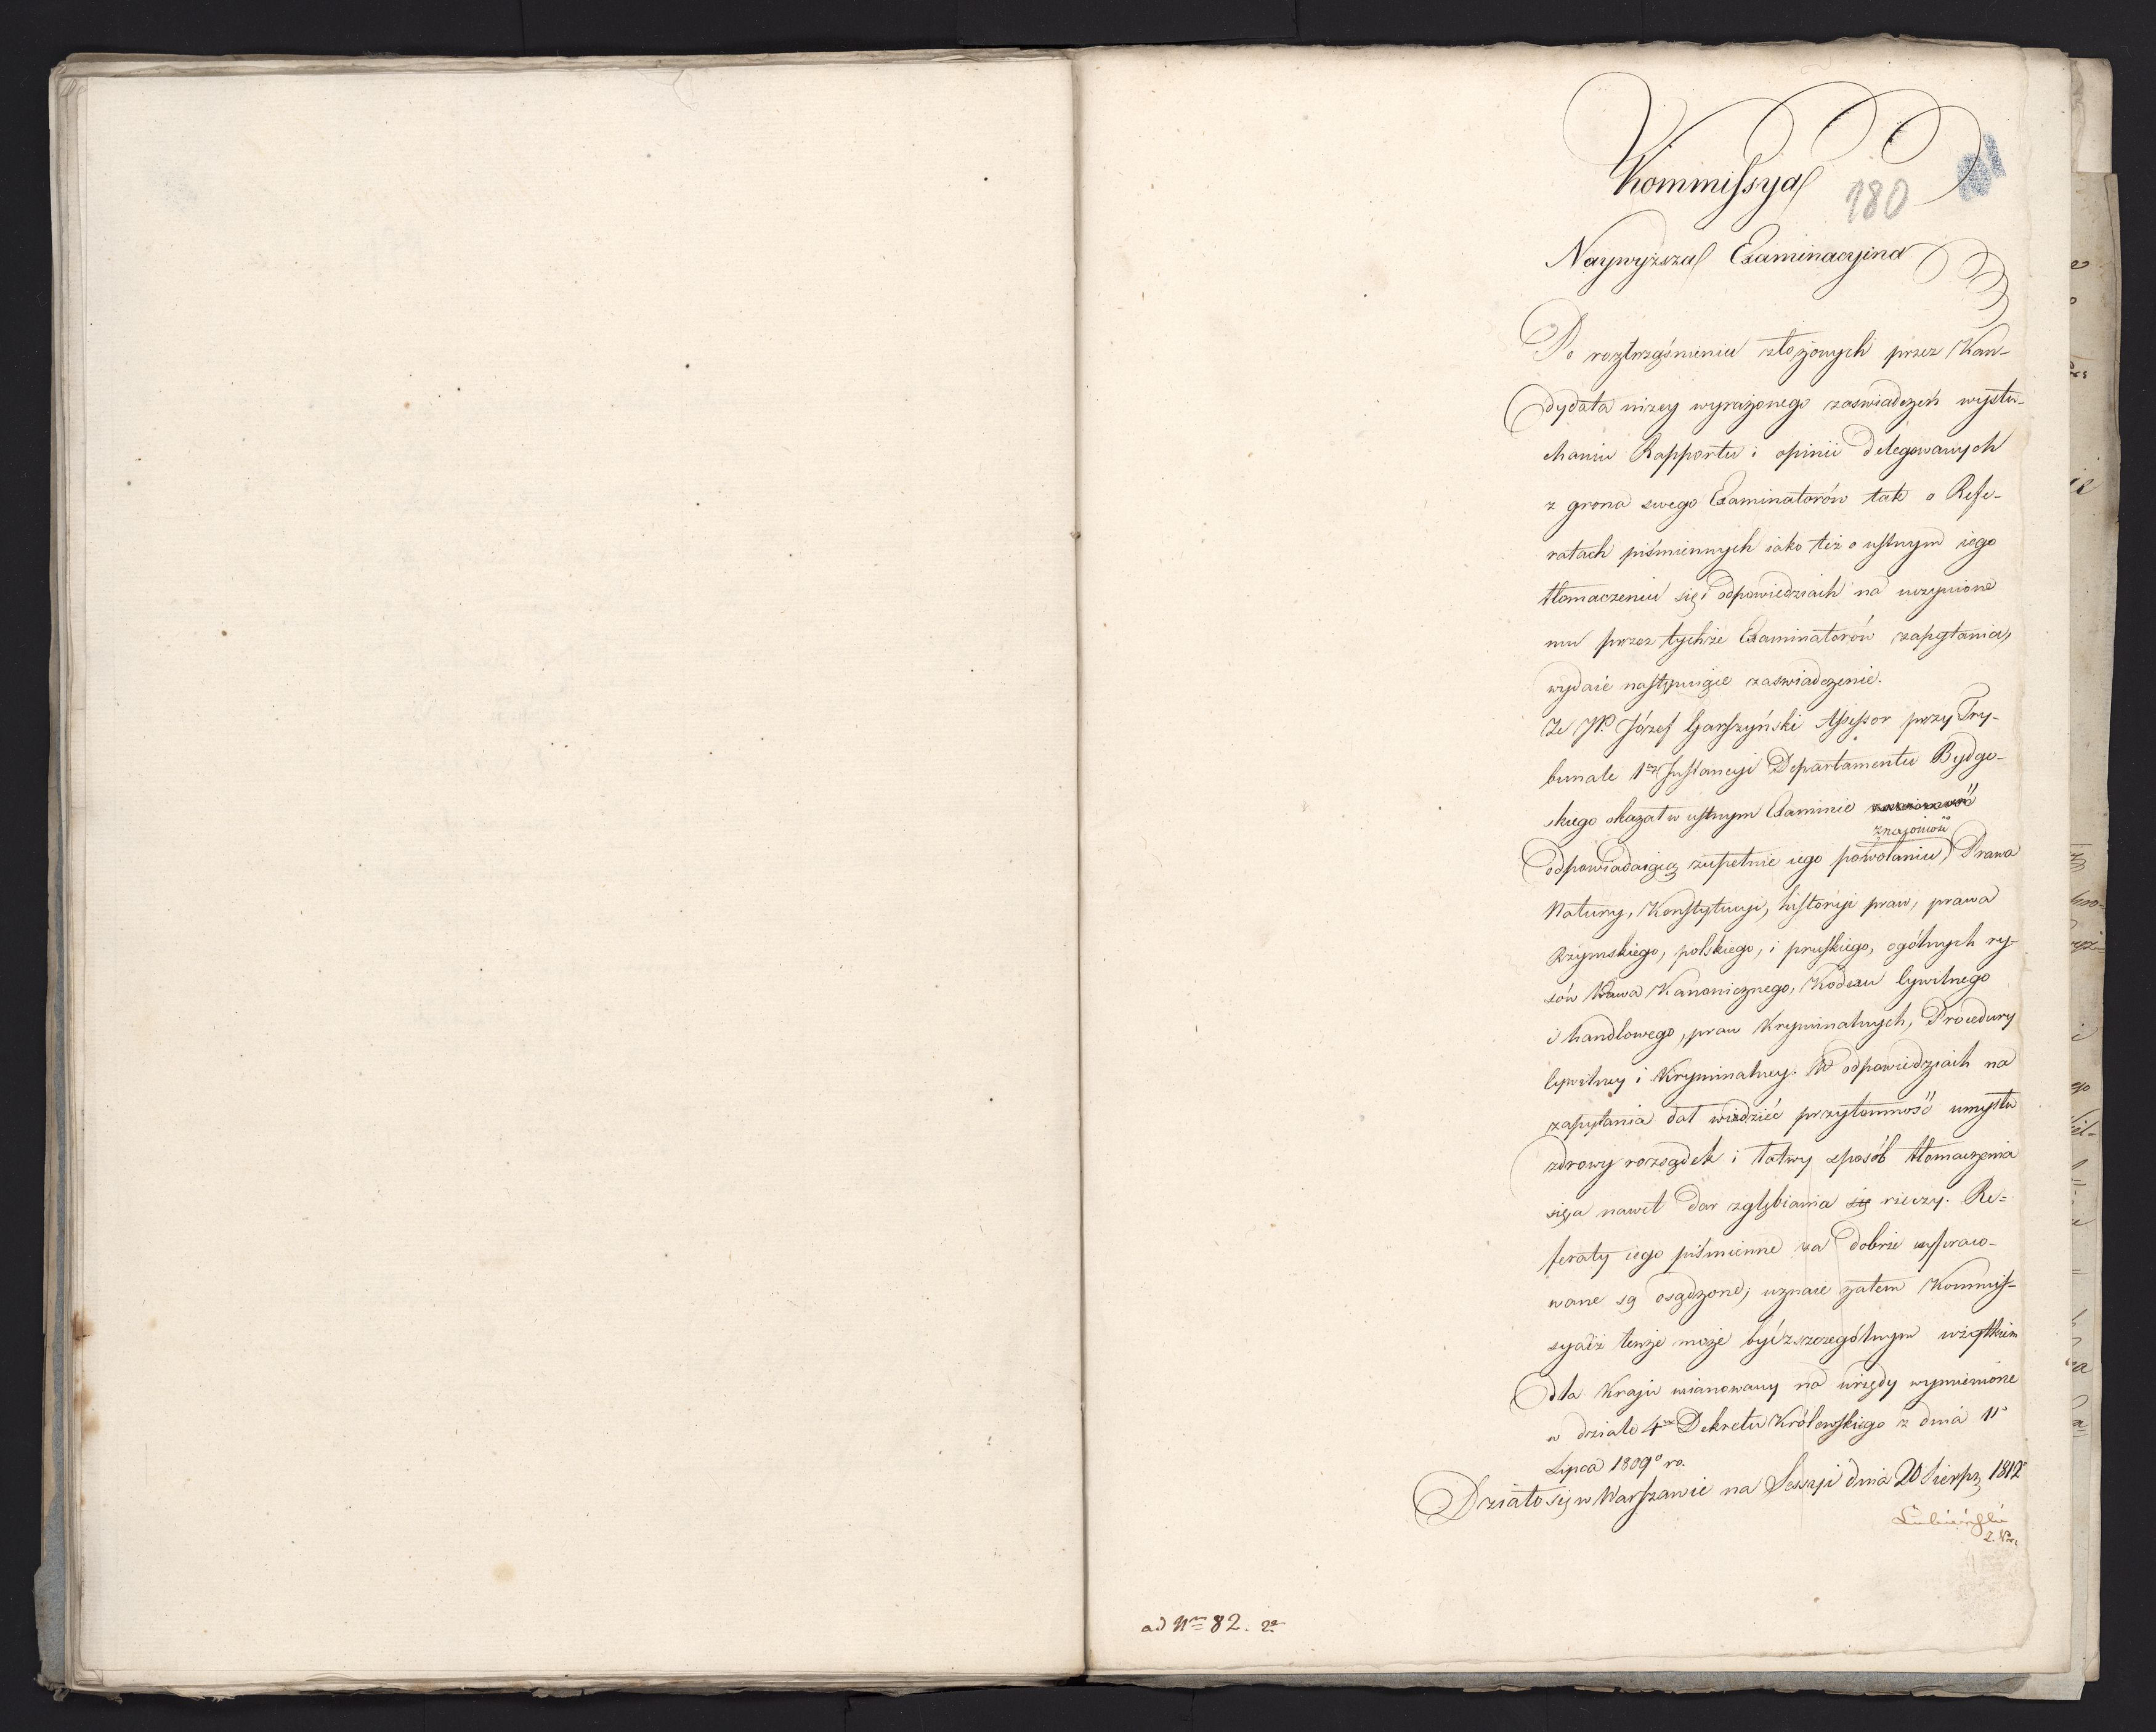 Kommissya
180
Naywyższa Examinacyina
Po roztrząśnieniu złożonych przez Kan-
dydata niżey wyrażonego zaswiadczeń wysłu-
chaniu Rapportu i opinii delegowanych
z grona swego Examinatorów tak o Refe-
ratach piśmiennych iako też o ustnym iego
tłomaczeniu się i odpowiedziach na uczynione
mu przez tychże Examinatorów zapytania,
wydaie następuiące zaswiadczenie.
Że JP. Józef Garszyński Assessor przy Try-
bunale 1ey Instancyi Departamentu Bydgo-
skiego okazał w ustnym Examinie
znajomość
odpowiadaiącą zupełnie iego powołaniu Prawa
Natury, Konstytucyi, historyi praw, prawa
Rzymskiego, polskiego, i pruskiego, ogólnych ry-
sów Prawa Kanonicznego, Kodexu Cywilnego
i handlowego, praw Kryminalnych, Procedury
Cywilney i Kryminalney. W odpowiedziach na
zapytania dał widzieć przytomność umysłu
zdrowy rozsądek i łatwy sposób tłomaczenia
się, a nawet dar zgłębiania się rzeczy. Re=
feraty iego piśmienne za dobrze wypraco-
wane są osądzone; uznaie zatem Kommis-
sya iż tenże może być z szczególnym użytkiem
dla Kraju mianowany na urzędy wymienione
w dziale 4m Dekretu Królewskiego z dnia 11o
Lipca 1809o ro.
Działo się w Warszawie na Sessyi dnia 20 Sierp. 1812
Łubieński
ad Nrm 82.